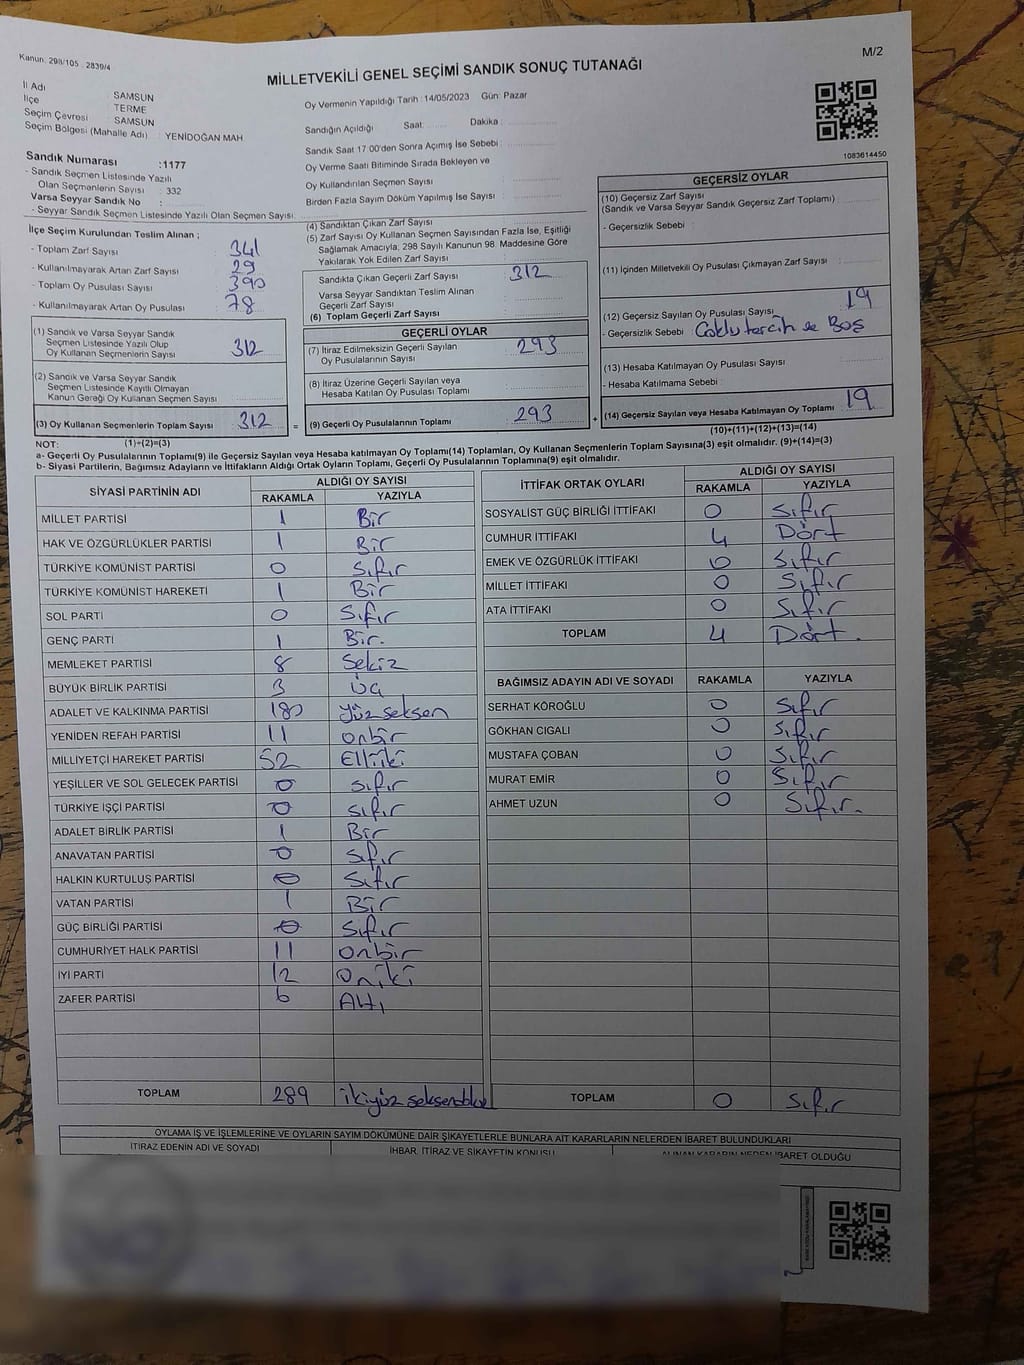 Kanun: 298/105 : 2839/4
M/2
MİLLETVEKİLİ GENEL SEÇİMİ SANDIK SONUÇ TUTANAĞI
İl Adı SAMSUN
İlçe TERME
Seçim Çevresi SAMSUN
Seçim Bölgesi (Mahalle Adı) : YENİDOĞAN MAH
Sandık Numarası : 1177
- Sandık Seçmen Listesinde Yazılı
Olan Seçmenlerin Sayısı : 332
Varsa Seyyar Sandık No :
- Seyyar Sandık Seçmen Listesinde Yazılı Olan Seçmen Sayısı
Oy Vermenin Yapıldığı Tarih : 14/05/2023 Gün: Pazar
Sandığın Açıldığı Saat: Dakika :
Sandık Saat 17:00'den Sonra Açılmış İse Sebebi
Oy Verme Saati Bitiminde Sırada Bekleyen ve
Oy Kullandırılan Seçmen Sayısı
Birden Fazla Sayım Döküm Yapılmış İse Sayısı :
1083614450
İlçe Seçim Kurulundan Teslim Alınan ;
- Toplam Zarf Sayısı 341
- Kullanılmayarak Artan Zarf Sayısı 29
- Toplam Oy Pusulası Sayısı 390
- Kullanılmayarak Artan Oy Pusulası 78
(1) Sandık ve Varsa Seyyar Sandık
Seçmen Listesinde Yazılı Olup
Oy Kullanan Seçmenlerin Sayısı 312
(2) Sandık ve Varsa Seyyar Sandık
Seçmen Listesinde Kayıtlı Olmayan
Kanun Gereği Oy Kullanan Seçmen Sayısı
(3) Oy Kullanan Seçmenlerin Toplam Sayısı 312 =
(4) Sandıktan Çıkan Zarf Sayısı
(5) Zarf Sayısı Oy Kullanan Seçmen Sayısından Fazla İse, Eşitliği
Sağlamak Amacıyla; 298 Sayılı Kanunun 98. Maddesine Göre
Yakılarak Yok Edilen Zarf Sayısı
Sandıkta Çıkan Geçerli Zarf Sayısı 312
Varsa Seyyar Sandıktan Teslim Alınan
Geçerli Zarf Sayısı
(6) Toplam Geçerli Zarf Sayısı
GEÇERLİ OYLAR
(7) İtiraz Edilmeksizin Geçerli Sayılan
Oy Pusulalarının Sayısı 293
(8) İtiraz Üzerine Geçerli Sayılan veya
Hesaba Katılan Oy Pusulası Toplamı
(9) Geçerli Oy Pusulalarının Toplamı 293 +
GEÇERSİZ OYLAR
(10) Geçersiz Zarf Sayısı
(Sandık ve Varsa Seyyar Sandık Geçersiz Zarf Toplamı)
- Geçersizlik Sebebi :
(11) İçinden Milletvekili Oy Pusulası Çıkmayan Zarf Sayısı
(12) Geçersiz Sayılan Oy Pusulası Sayısı 19
- Geçersizlik Sebebi Çoklu tercih ve Boş
(13) Hesaba Katılmayan Oy Pusulası Sayısı
- Hesaba Katılmama Sebebi
(14) Geçersiz Sayılan veya Hesaba Katılmayan Oy Toplamı 19
NOT: (1)+(2)=(3) (10)+(11)+(12)+(13)=(14)
a- Geçerli Oy Pusulalarının Toplamı(9) ile Geçersiz Sayılan veya Hesaba katılmayan Oy Toplamı(14) Toplamları, Oy Kullanan Seçmenlerin Toplam Sayısına(3) eşit olmalıdır. (9)+(14)=(3)
b- Siyasi Partilerin, Bağımsız Adayların ve İttifakların Aldığı Ortak Oyların Toplamı, Geçerli Oy Pusulalarının Toplamına(9) eşit olmalıdır.
SİYASİ PARTİNİN ADI ALDIĞI OY SAYISI
RAKAMLA YAZIYLA
MİLLET PARTİSİ 1 Bir
HAK VE ÖZGÜRLÜKLER PARTİSİ 1 Bir
TÜRKİYE KOMÜNİST PARTİSİ 0 Sıfır
TÜRKİYE KOMÜNİST HAREKETİ 1 Bir
SOL PARTİ 0 Sıfır
GENÇ PARTİ 1 Bir.
MEMLEKET PARTİSİ 8 Sekiz
BÜYÜK BİRLİK PARTİSİ 3 Üç
ADALET VE KALKINMA PARTİSİ 180 Yüzseksen
YENİDEN REFAH PARTİSİ 11 Onbir
MİLLİYETÇİ HAREKET PARTİSİ 52 Elliiki
YEŞİLLER VE SOL GELECEK PARTİSİ 0 Sıfır
TÜRKİYE İŞÇİ PARTİSİ 0 Sıfır
ADALET BİRLİK PARTİSİ 1 Bir
ANAVATAN PARTİSİ 0 Sıfır
HALKIN KURTULUŞ PARTİSİ 0 Sıfır
VATAN PARTİSİ 1 Bir
GÜÇ BİRLİĞİ PARTİSİ 0 Sıfır
CUMHURİYET HALK PARTİSİ 11 Onbir
İYİ PARTİ 12 Oniki
ZAFER PARTİSİ 6 Altı
TOPLAM 289 ikiyüz seksendokuz
İTTİFAK ORTAK OYLARI ALDIĞI OY SAYISI
RAKAMLA YAZIYLA
SOSYALİST GÜÇ BİRLİĞİ İTTİFAKI 0 Sıfır
CUMHUR İTTİFAKI 4 Dört
EMEK VE ÖZGÜRLÜK İTTİFAKI 0 Sıfır
MİLLET İTTİFAKI 0 Sıfır
ATA İTTİFAKI 0 Sıfır
TOPLAM 4 Dört.
BAĞIMSIZ ADAYIN ADI VE SOYADI RAKAMLA YAZIYLA
SERHAT KÖROĞLU 0 Sıfır
GÖKHAN CIGALI 0 Sıfır
MUSTAFA ÇOBAN 0 Sıfır
MURAT EMİR 0 Sıfır
AHMET UZUN 0 Sıfır.
TOPLAM 0 Sıfır
OYLAMA İŞ VE İŞLEMLERİNE VE OYLARIN SAYIM DÖKÜMÜNE DAİR ŞİKAYETLERLE BUNLARA AİT KARARLARIN NELERDEN İBARET BULUNDUKLARI
İTİRAZ EDENİN ADI VE SOYADI İHBAR, İTİRAZ VE ŞİKAYETİN KONUSU ALINAN KARARIN NEDEN İBARET OLDUĞU